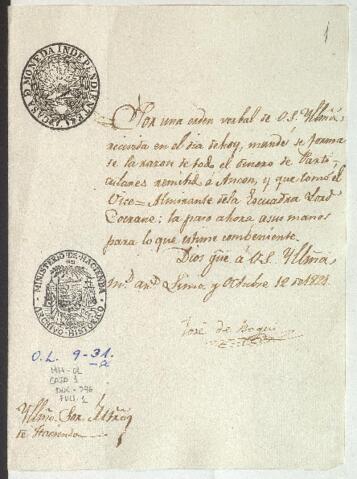 1
CASA D MONEDA INDEPENDIENT
Por una orden verbal de V.S. Yltmã.
recivida en el dia de hoy, mandé se forma
se la razon de todo el dinero de Parti
culares remitido a Ancon, y que tomó el
Vice=Almirante de la Escuadra Lord
Cocrane: la paso ahora a sus manos
para lo que estime combeniente.
Dios gue à V.S. Yltma
m.s an.s Lima y Octubre 12 de 1821.
José de Boqui
MINISTERIO DE HACIENDA
ARCHIVO HISTORICO
O.L. 9-31.
MH-OL
CAJA 1
DOC-
FOLI-1
Yltmo Sor
de Hacienda